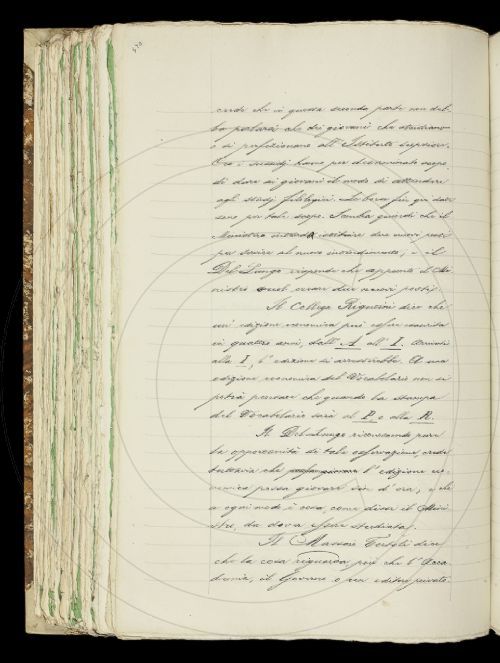 crede che in questa seconda parte non deb-
ba parlarsi che dei giovani che studiarono
o si perfezionano all' Istituto superiore.
Ora i sussidj hanno per determinato scopo
di dare ai giovani il modo di attendere
agli studj filologici. Le borse fin qui date
sono per tale scopo. Sembra quindi che il
Ministro intenda istituire due nuovi posti
per servire al nuovo intendimento, e il
Del Lungo risponde che appunto il Mi-
nistro vuol creare due nuovi posti.
Il Collega Rigutini dice che
un' edizione economica può essere esaurita
in quattro anni, dall' A all' I. Arrivati
alla I, l' edizione si arresterebbe. A una
edizione economica del Vocabolario non si
potrà pensare che quando la stampa
del Vocabolario sarà al P o alla R.
Il Del Lungo riconoscendo pure
la opportunità di tale osservazione, crede
tuttavia che l' edizione eco-
nomica possa giovare sin d' ora, e che
a ogni modo è cosa, come disse il Mini
stro, da dover essere studiata.
Il Massaro Tortoli dice
che la cosa riguarda poi che l' Acca
demia, il Governo o un editore privato